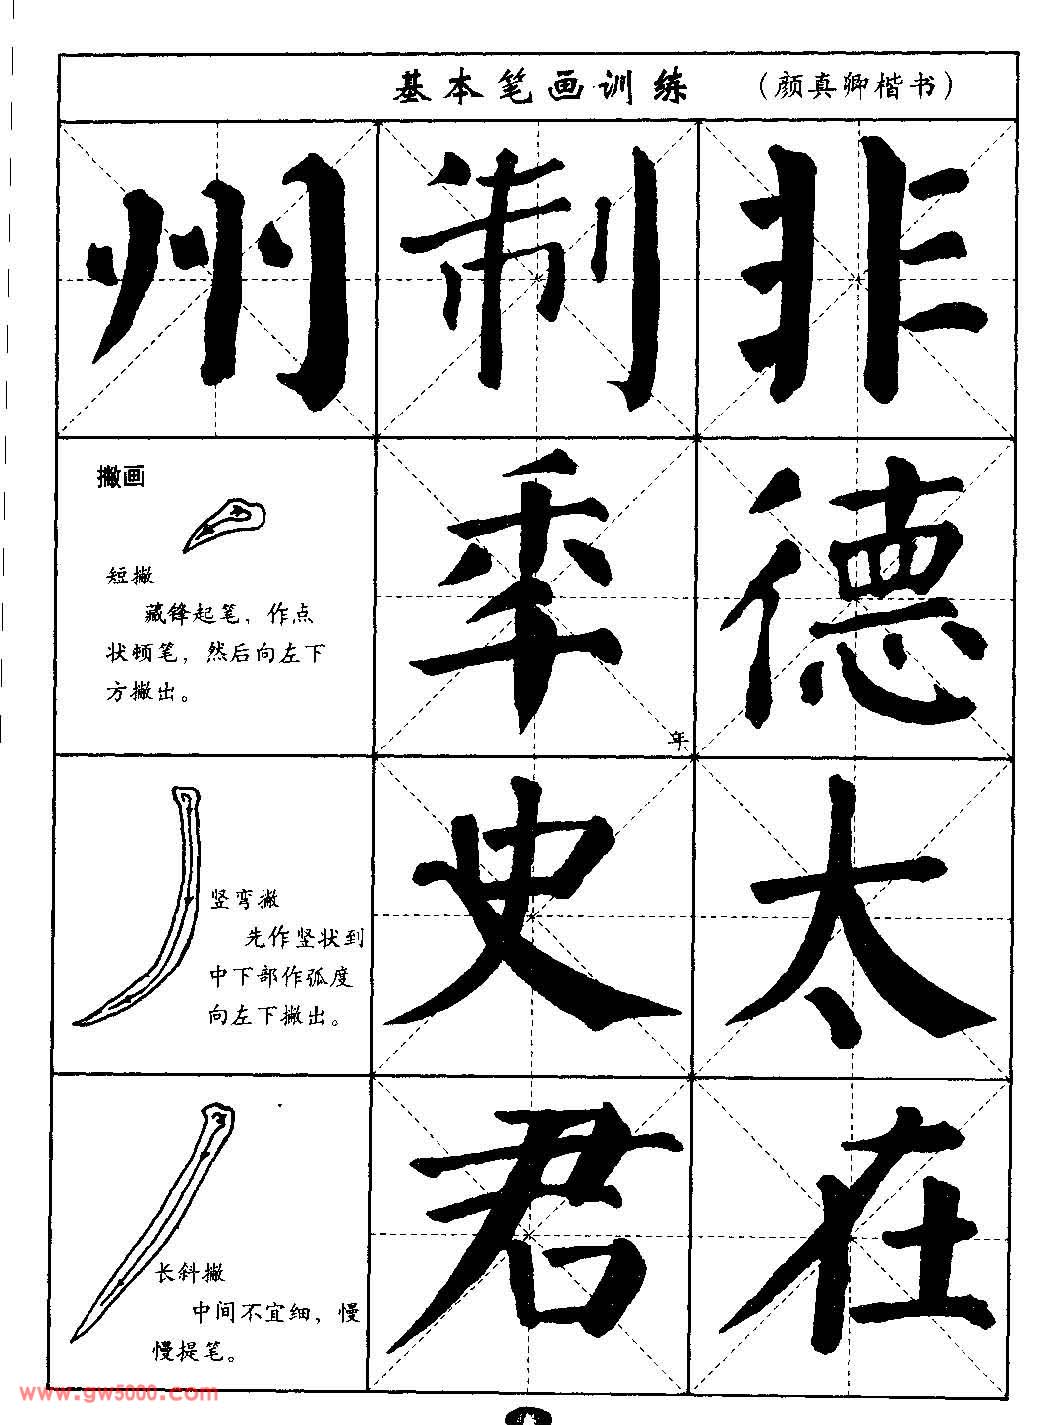 基本笔画训练 （颜真卿楷书）
州 制 非
撇画
短撇
藏锋起笔，作点
状顿笔，然后向左下
方撇出。
秊 德
年
竖弯撇
先作竖状到
中下部作弧度
向左下撇出。
史 太
长斜撇
中间不宜细，慢
慢提笔。
君 在
www.gw5000.com